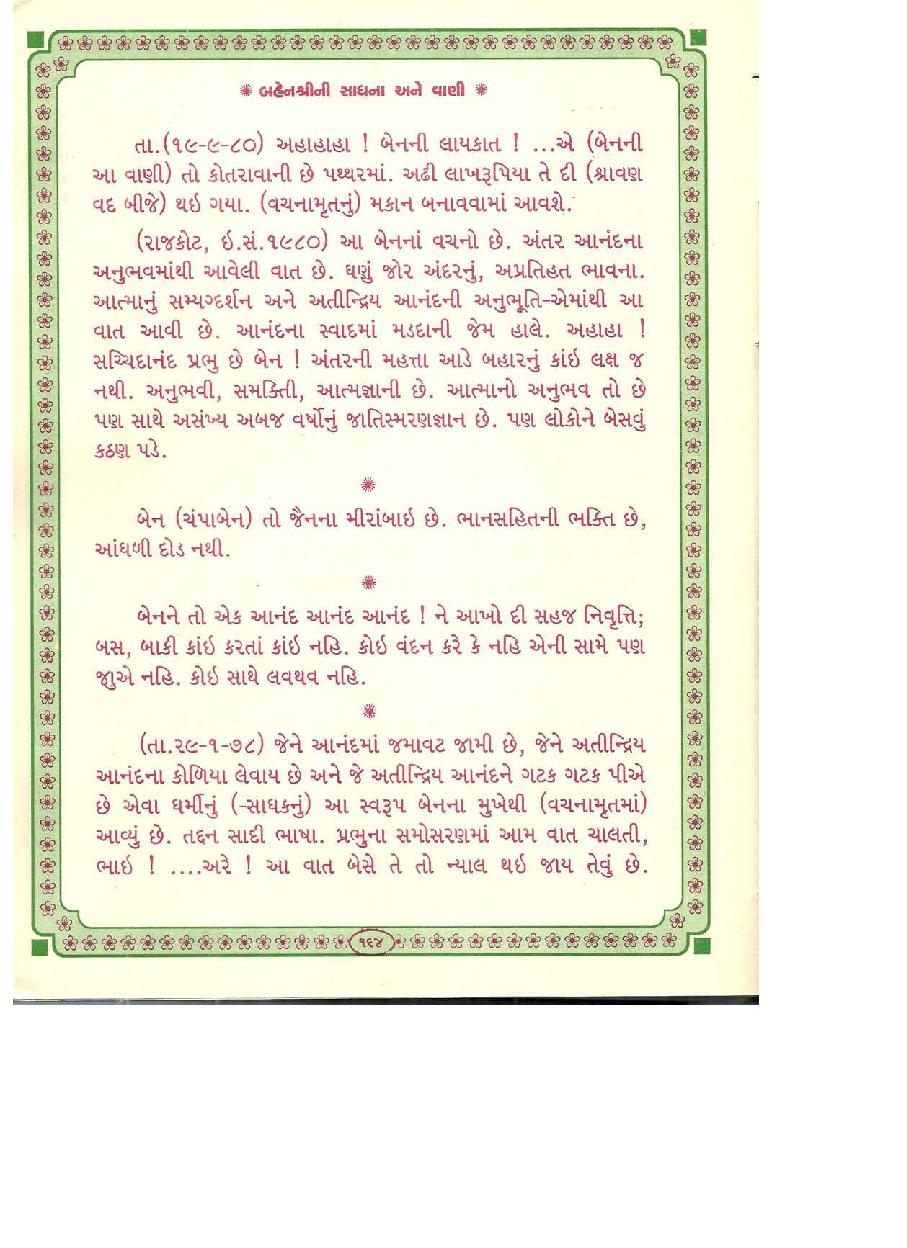 ✺ બહેનશ્રીની સાધના અને વાણી ✺
તા.(૧૯-૯-૮૦) અહાહાહા ! બેનની લાયકાત ! ...એ (બેનની
આ વાણી) તો કોતરાવાની છે પથ્થરમાં. અઢી લાખરૂપિયા તે દી (શ્રાવણ
વદ બીજે) થઇ ગયા. (વચનામૃતનું) મકાન બનાવવામાં આવશે.
(રાજકોટ, ઇ.સં.૧૯૮૦) આ બેનનાં વચનો છે. અંતર આનંદના
અનુભવમાંથી આવેલી વાત છે. ઘણું જોર અંદરનું, અપ્રતિહત ભાવના.
આત્માનું સમ્યગ્દર્શન અને અતીન્દ્રિય આનંદની અનુભૂતિ-એમાંથી આ
વાત આવી છે. આનંદના સ્વાદમાં મડદાની જેમ હાલે. અહાહા !
સચ્ચિદાનંદ પ્રભુ છે બેન ! અંતરની મહત્તા આડે બહારનું કાંઇ લક્ષ જ
નથી. અનુભવી, સમક્તિી, આત્મજ્ઞાની છે. આત્માનો અનુભવ તો છે
પણ સાથે અસંખ્ય અબજ વર્ષોનું જાતિસ્મરણજ્ઞાન છે. પણ લોકોને બેસવું
કઠણ પડે.
✺
બેન (ચંપાબેન) તો જૈનના મીરાંબાઇ છે. ભાનસહિતની ભક્તિ છે,
આંધળી દોડ નથી.
✺
બેનને તો એક આનંદ આનંદ આનંદ ! ને આખો દી સહજ નિવૃત્તિ;
બસ, બાકી કાંઇ કરતાં કાંઇ નહિ. કોઇ વંદન કરે કે નહિ એની સામે પણ
જુાએ નહિ. કોઇ સાથે લવથવ નહિ.
✺
(તા.૨૯-૧-૭૮) જેને આનંદમાં જમાવટ જામી છે, જેને અતીન્દ્રિય
આનંદના કોળિયા લેવાય છે અને જે અતીન્દ્રિય આનંદને ગટક ગટક પીએ
છે એવા ધર્મીનું (-સાધકનું) આ સ્વરૂપ બેનના મુખેથી (વચનામૃતમાં)
આવ્યું છે. તદ્દન સાદી ભાષા. પ્રભુના સમોસરણમાં આમ વાત ચાલતી,
ભાઇ ! ....અરે ! આ વાત બેસે તે તો ન્યાલ થઇ જાય તેવું છે.
૧૬૪